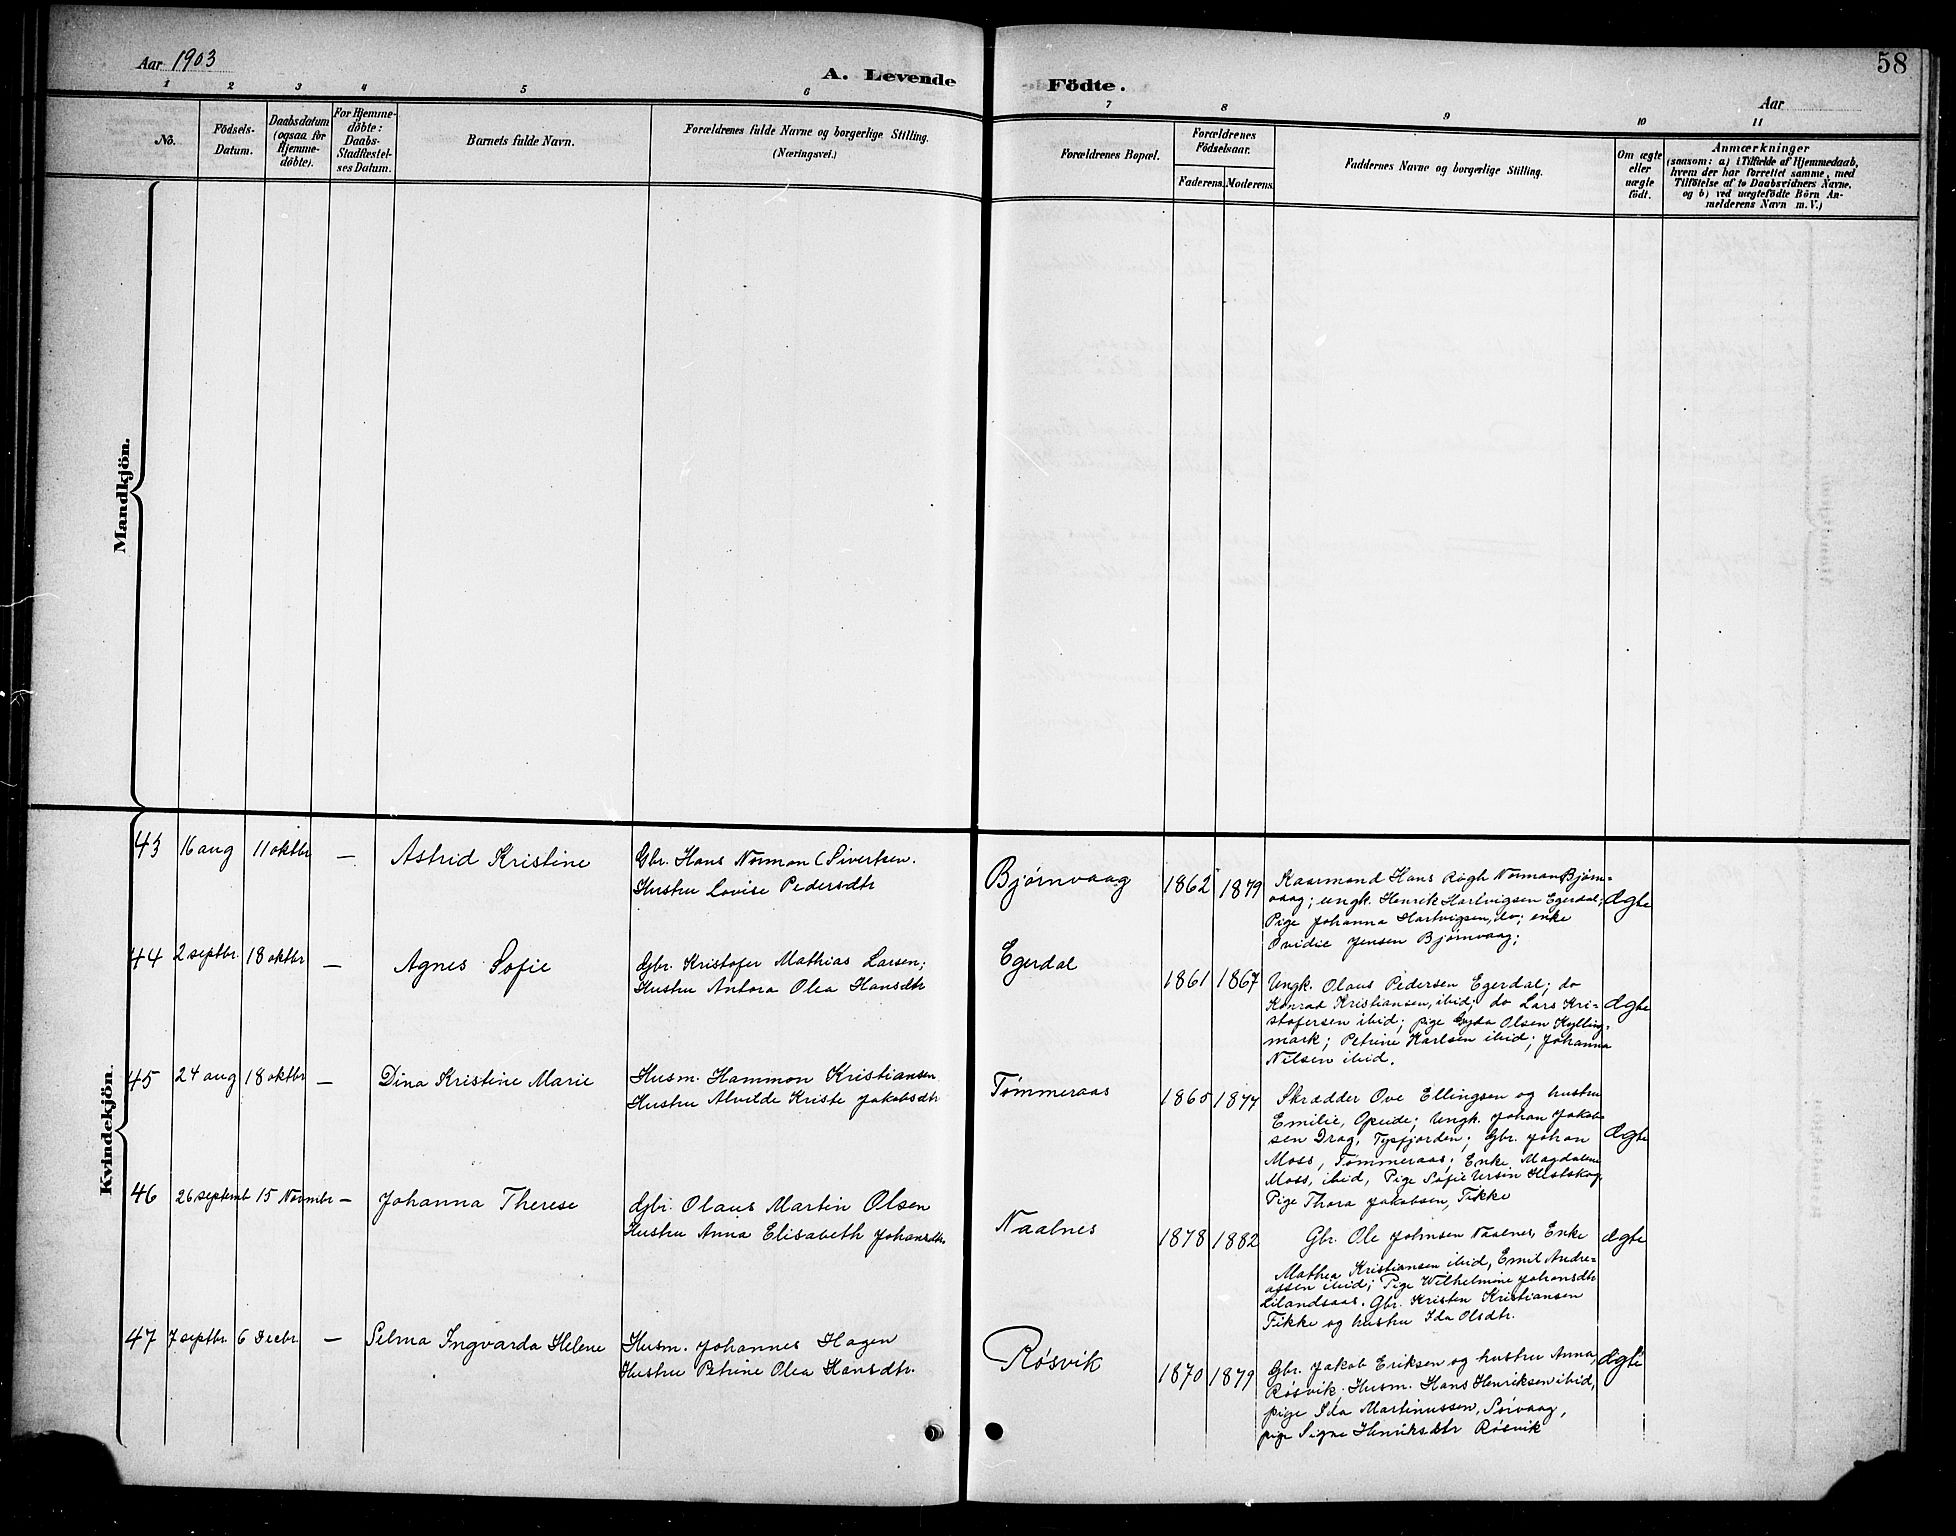 Aar 1903
A. Levende
Födte.
58
Aar
1 2 3 4 5 6 7 8 9 10 11
No.
Födsels-
Datum.
Daabsdatum
(ogsaa for
Hjemme-
döbte).
For Hjemme-
döbte:
Daabs-
Stadfæstel-
ses Datum.
Barnets fulde Navn.
Forældrenes fulde Navne og borgerlige Stilling.
(Næringsvei.)
Forældrenes Bopæl.
Forældrenes
Födselsaar.
Faderens. Moderens.
Faddernes Navne og borgerlige Stilling.
Om ægte
eller
uægte
födt.
Anmærkninger
(saasom: a) i Tilfælde af Hjemmedaab,
hvem der har forrettet samme, med
Tilföielse af to Daabsvidners Navne,
og b) ved uægtefödte Börn An-
melderens Navn m. V.)
Mandkjön.
Kvindekjön.
43 16 aug 11 oktbr — Astrid Kristine
Gbr. Hans Norman (Sivertsen.
Hustru Lovise Pedersdtr
Bjørnvaag 1862 1879
Kaarmand Hans Rögh Norman Bjørn-
vaag; ungk. Henrik Hartvigsen Egerdal;
Pige Johanna Hartvigsen, do; enke
Ovidie Jensen Bjørnvaag;
ægte
44 2 septbr. 18 oktbr — Agnes Sofie
Gbr. Kristofer Mathias Larsen;
Hustru Antora Olea Hansdtr
Egerdal 1861 1867
Ungk. Olaus Pedersen Egerdal; do
Konrad Kristiansen, ibid; do Lars Kri-
stofersen ibid; pige Gyda Olsen Kylling-
mark; Petrine Karlsen ibid; Johanna
Nilsen ibid.
ægte
45 24 aug 18 oktbr — Dina Kristine Marie
Husm. Hammon Kristiansen
Hustru Alvilde Kriste Jakobsdtr
Tømmeraas 1865 1877
Skrædder Ove Ellingsen og hustru
Emilie, Opeide; Ungk. Johan Jakob-
sen Drag, Tysfjorden; Gbr. Johan
Moss, Tømmeraas; Enke Magdalene
Moss, ibid, Pige Sofie Ursin Hestskog,
Pige Thora Jakobsen, Fikke
ægte
46 26 septemb 15 Novmbr — Johanna Therese
Gbr. Olaus Martin Olsen
Hustru Anna Elisabeth Johansdtr.
Naalnes 1878 1882
Gbr. Ole Johnsen Naalnes, Enke
Mathea Kristiansen ibid, Emil Andre-
assen ibid; Pige Wilhelmine Johansdtr
Lilandsaas. Gbr. Kristen Kristiansen
Fikke og hustru Ida Olsdtr.
ægte
47 7 septbr. 6 Decbr. — Selma Ingvarda Helene
Husm. Johannes Hagen
Hustru Petrine Olea Hansdtr.
Røsvik 1870 1879
Gbr. Jakob Eriksen og hustru Anna,
Røsvik; Husm. Hans Henriksen ibid,
pige Ida Martinussen, Sørvaag,
pige Signe Henriksdtr Røsvik
ægte